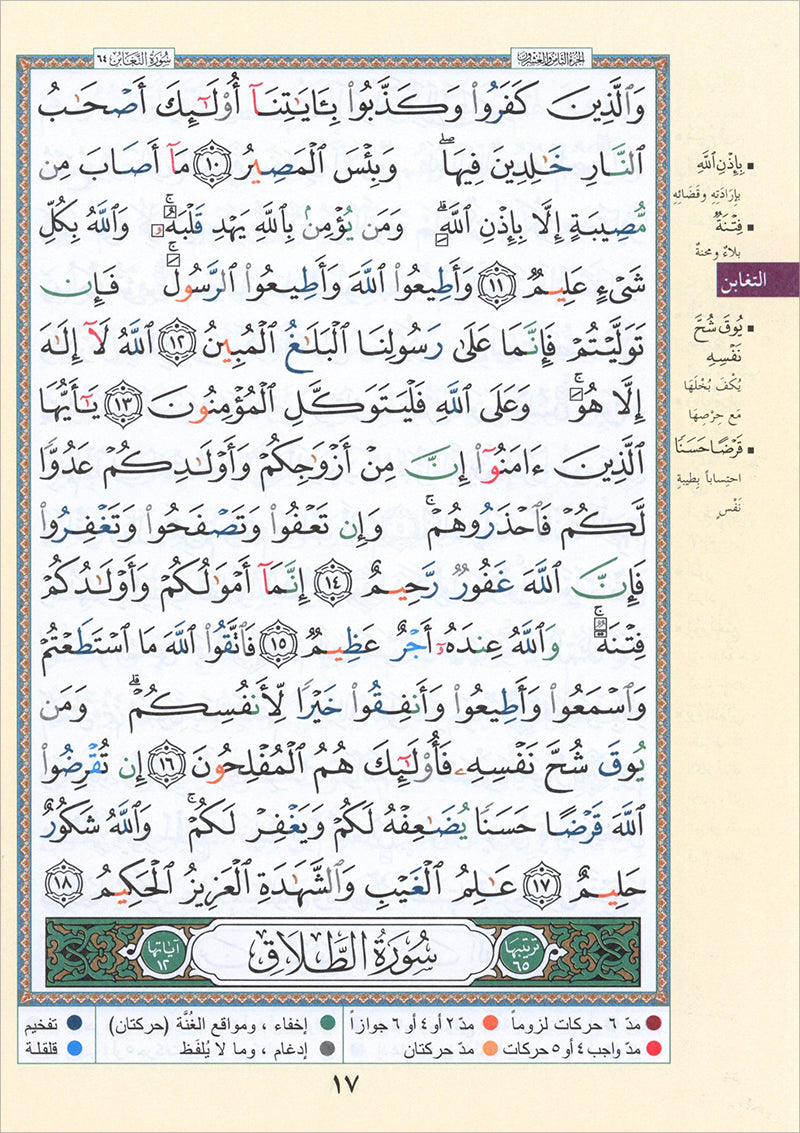 الجزء الثامن والعشرون
سورة التغابن ٦٤
وَٱلَّذِينَ كَفَرُوا۟ وَكَذَّبُوا۟ بِـَٔايَـٰتِنَآ أُو۟لَـٰٓئِكَ أَصْحَـٰبُ
ٱلنَّارِ خَـٰلِدِينَ فِيهَا ۖ وَبِئْسَ ٱلْمَصِيرُ ١٠ مَآ أَصَابَ مِن
مُّصِيبَةٍ إِلَّا بِإِذْنِ ٱللَّهِ ۗ وَمَن يُؤْمِنۢ بِٱللَّهِ يَهْدِ قَلْبَهُۥ ۚ وَٱللَّهُ بِكُلِّ
شَىْءٍ عَلِيمٌ ١١ وَأَطِيعُوا۟ ٱللَّهَ وَأَطِيعُوا۟ ٱلرَّسُولَ ۚ فَإِن
تَوَلَّيْتُمْ فَإِنَّمَا عَلَىٰ رَسُولِنَا ٱلْبَلَـٰغُ ٱلْمُبِينُ ١٢ ٱللَّهُ لَآ إِلَـٰهَ
إِلَّا هُوَ ۚ وَعَلَى ٱللَّهِ فَلْيَتَوَكَّلِ ٱلْمُؤْمِنُونَ ١٣ يَـٰٓأَيُّهَا
ٱلَّذِينَ ءَامَنُوٓا۟ إِنَّ مِنْ أَزْوَٰجِكُمْ وَأَوْلَـٰدِكُمْ عَدُوًّا
لَّكُمْ فَٱحْذَرُوهُمْ ۚ وَإِن تَعْفُوا۟ وَتَصْفَحُوا۟ وَتَغْفِرُوا۟
فَإِنَّ ٱللَّهَ غَفُورٌ رَّحِيمٌ ١٤ إِنَّمَآ أَمْوَٰلُكُمْ وَأَوْلَـٰدُكُمْ
فِتْنَةٌ ۚ وَٱللَّهُ عِندَهُۥٓ أَجْرٌ عَظِيمٌ ١٥ فَٱتَّقُوا۟ ٱللَّهَ مَا ٱسْتَطَعْتُمْ
وَٱسْمَعُوا۟ وَأَطِيعُوا۟ وَأَنفِقُوا۟ خَيْرًا لِّأَنفُسِكُمْ ۗ وَمَن
يُوقَ شُحَّ نَفْسِهِۦ فَأُو۟لَـٰٓئِكَ هُمُ ٱلْمُفْلِحُونَ ١٦ إِن تُقْرِضُوا۟
ٱللَّهَ قَرْضًا حَسَنًا يُضَـٰعِفْهُ لَكُمْ وَيَغْفِرْ لَكُمْ ۚ وَٱللَّهُ شَكُورٌ
حَلِيمٌ ١٧ عَـٰلِمُ ٱلْغَيْبِ وَٱلشَّهَـٰدَةِ ٱلْعَزِيزُ ٱلْحَكِيمُ ١٨
ترتيبها ٦٥ سُورَةُ الطَّلَاق آياتها ١٢
بِإِذْنِ اللَّهِ
بإرادَتِهِ وقَضَائِهِ
فِتْنَةٌ
بلاءٌ ومحنةٌ
التغابن
يُوقَ شُحَّ
نَفْسِهِ
يُكْفَ بُخْلَهَا
مَع حِرْصِهَا
قَرْضًا حَسَنًا
احتِساباً بِطيبةِ
نَفْسٍ
مدّ ٦ حركات لزوماً مدّ ٢ أو ٤ أو ٦ جوازاً إخفاء ، ومواقع الغُنَّة (حركتان) تفخيم
مدّ واجب ٤ أو ٥ حركات مدّ حركتان إدغام ، وما لا يُلفَظ قلقلة
١٧